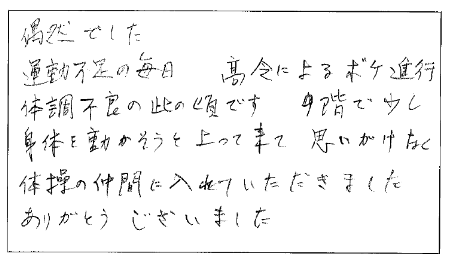 偶然でした
運動不足の毎日 高令によるボケ進行
体調不良の此の頃です 4階で少し
身体を動かそうと上って来て 思いがけなく
体操の仲間に入れていただきました
ありがとうございました